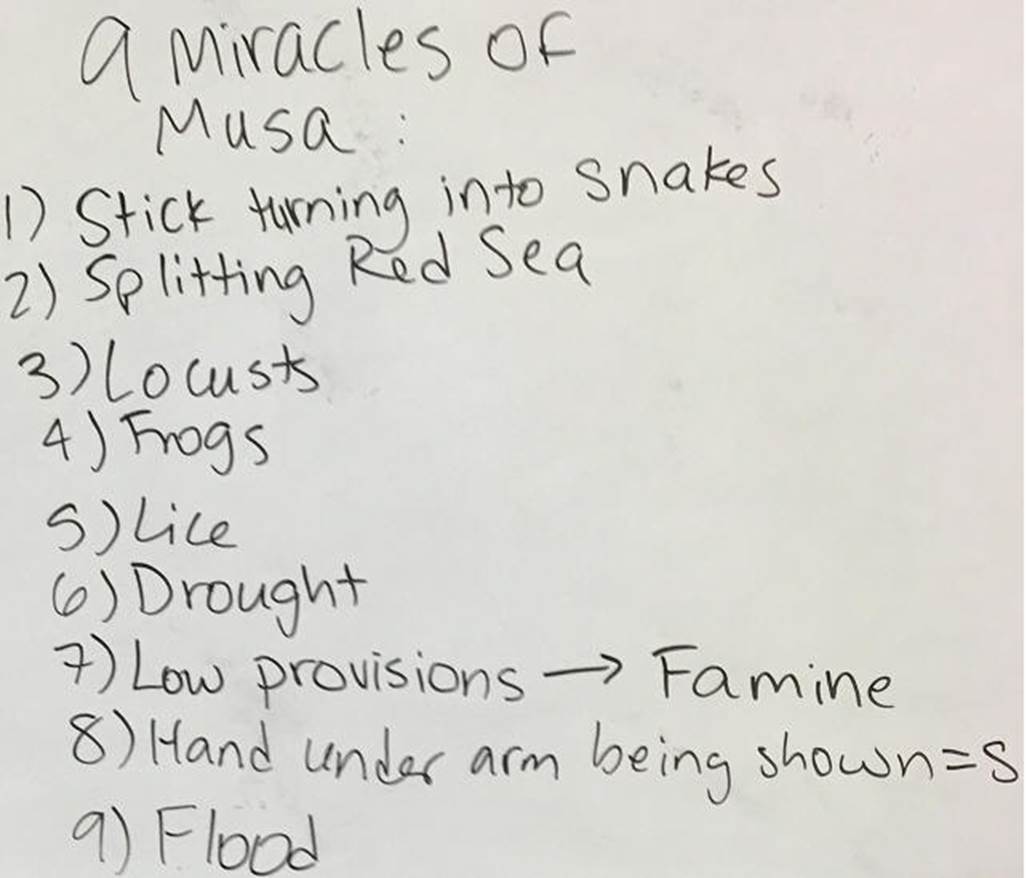 9 Miracles of
Musa :
1) Stick turning into snakes
2) Splitting Red Sea
3) Locusts
4) Frogs
5) Lice
6) Drought
7) Low provisions → Famine
8) Hand under arm being shown=s
9) Flood